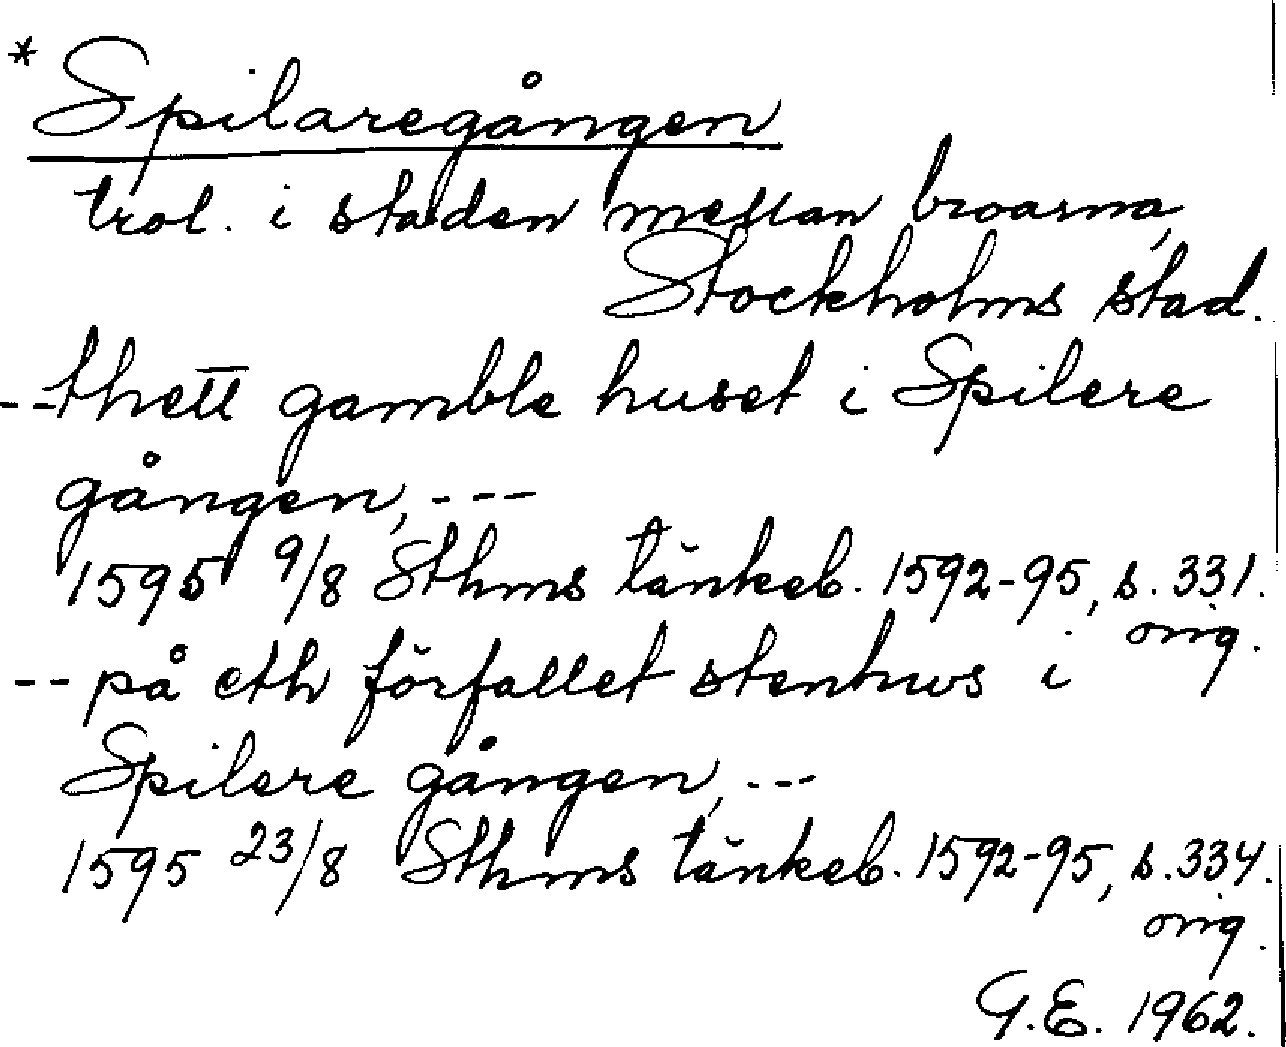 * Spilaregången
trol. i staden mellan broarna,
Stockholms stad.
-- thett gamble huset i Spilere
gången, ---
1595 9/8 Sthms tänkeb. 1592-95, s. 331.
orig.
-- på eth förfallet stenhws i
Spilere gången, ---
1595 23/8 Sthms tänkeb. 1592-95, s. 334.
orig.
G.E. 1962.